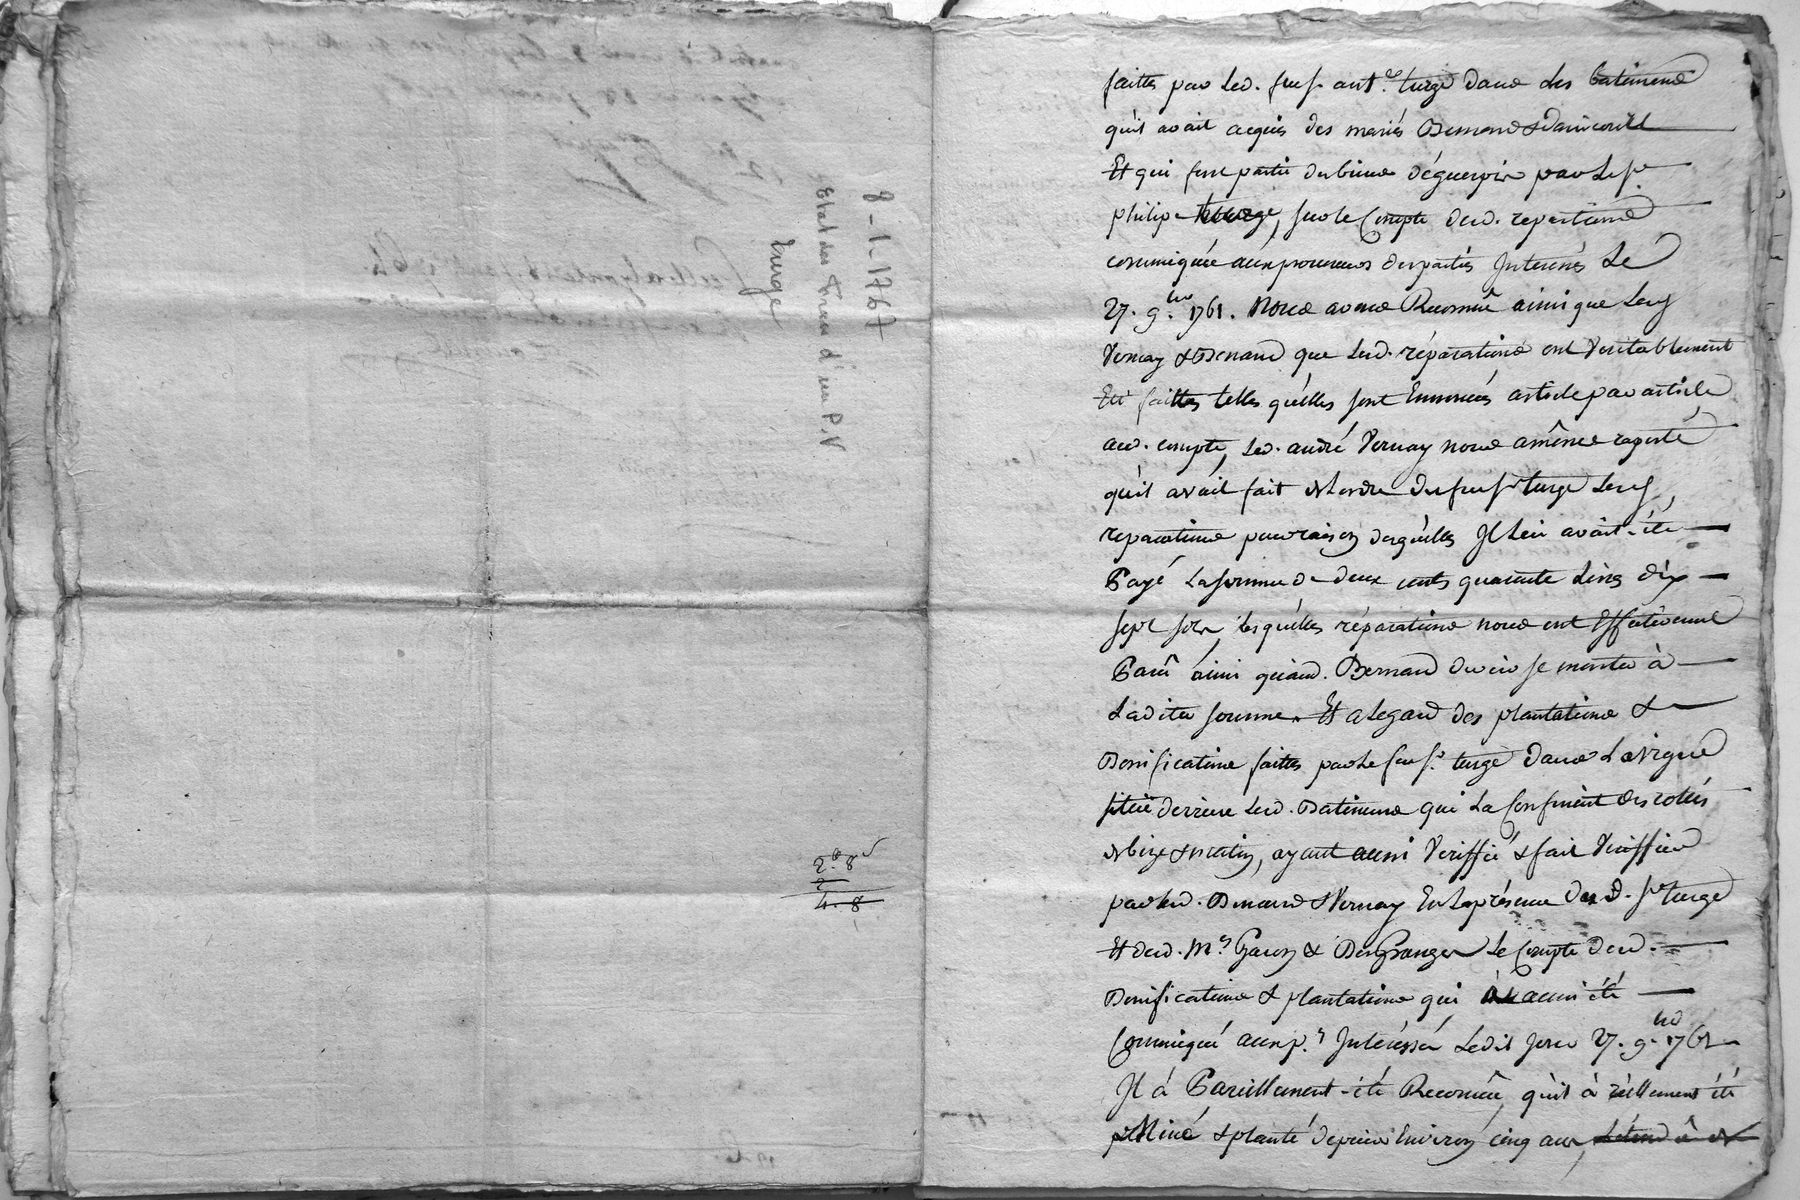 8-1-1767
Etat des Fonds d'un P.V
Turge
2. 8
2
4. 8
faittes par Led. feu Sr. ant.e turge dans Les batiments
qu'il avait acquis des mariés Bernard & Daincourt
Et qui font partie des biens déguerpis par Le Sr.
philipe turge, sur le Compte desd. reparations
communiquée aux procureurs des parties Interessés Le
27. 9.bre 1761. Nous avons Reconnû ainsi que Lesd
Vernay & Bernard que Lesd. réparations ont Veritablement
Eté faittes telles qu'elles sont Enoncées article par article
aud. compte, Led. andré Vernay nous a même raporté
qu'il avait fait du feu Sr turge Lesd
reparations pour raison desquelles Il Lui avait été
Payé La somme de deux cents quarante Livres dix
sept sols, lesquelles réparations nous ont Effectivement
Parû ainsi qu'aud. Bernard devoir se monter à
Ladite somme. Et a Legard des plantations &
Bonifications faittes par Le feu Sr. turge dans La Vigne
situé derriere Lesd. Batiments qui La Confinent des cotés
de bize & matin, ayant aussi Veriffié & fait Veriffier
par Lesd. Bernard & Vernay En La présence dud. Sr turge
Et desd. Mes Garon & DesGranges Le Compte desd.
Bonifications & plantations qui a aussi été
Communiqué aux p.rs Interéssés Ledit Jour 27. 9.bre 1761
Il à Pareillement été Reconnû, qu'il à réellement été
Miné & planté depuis Environ cinq ans,